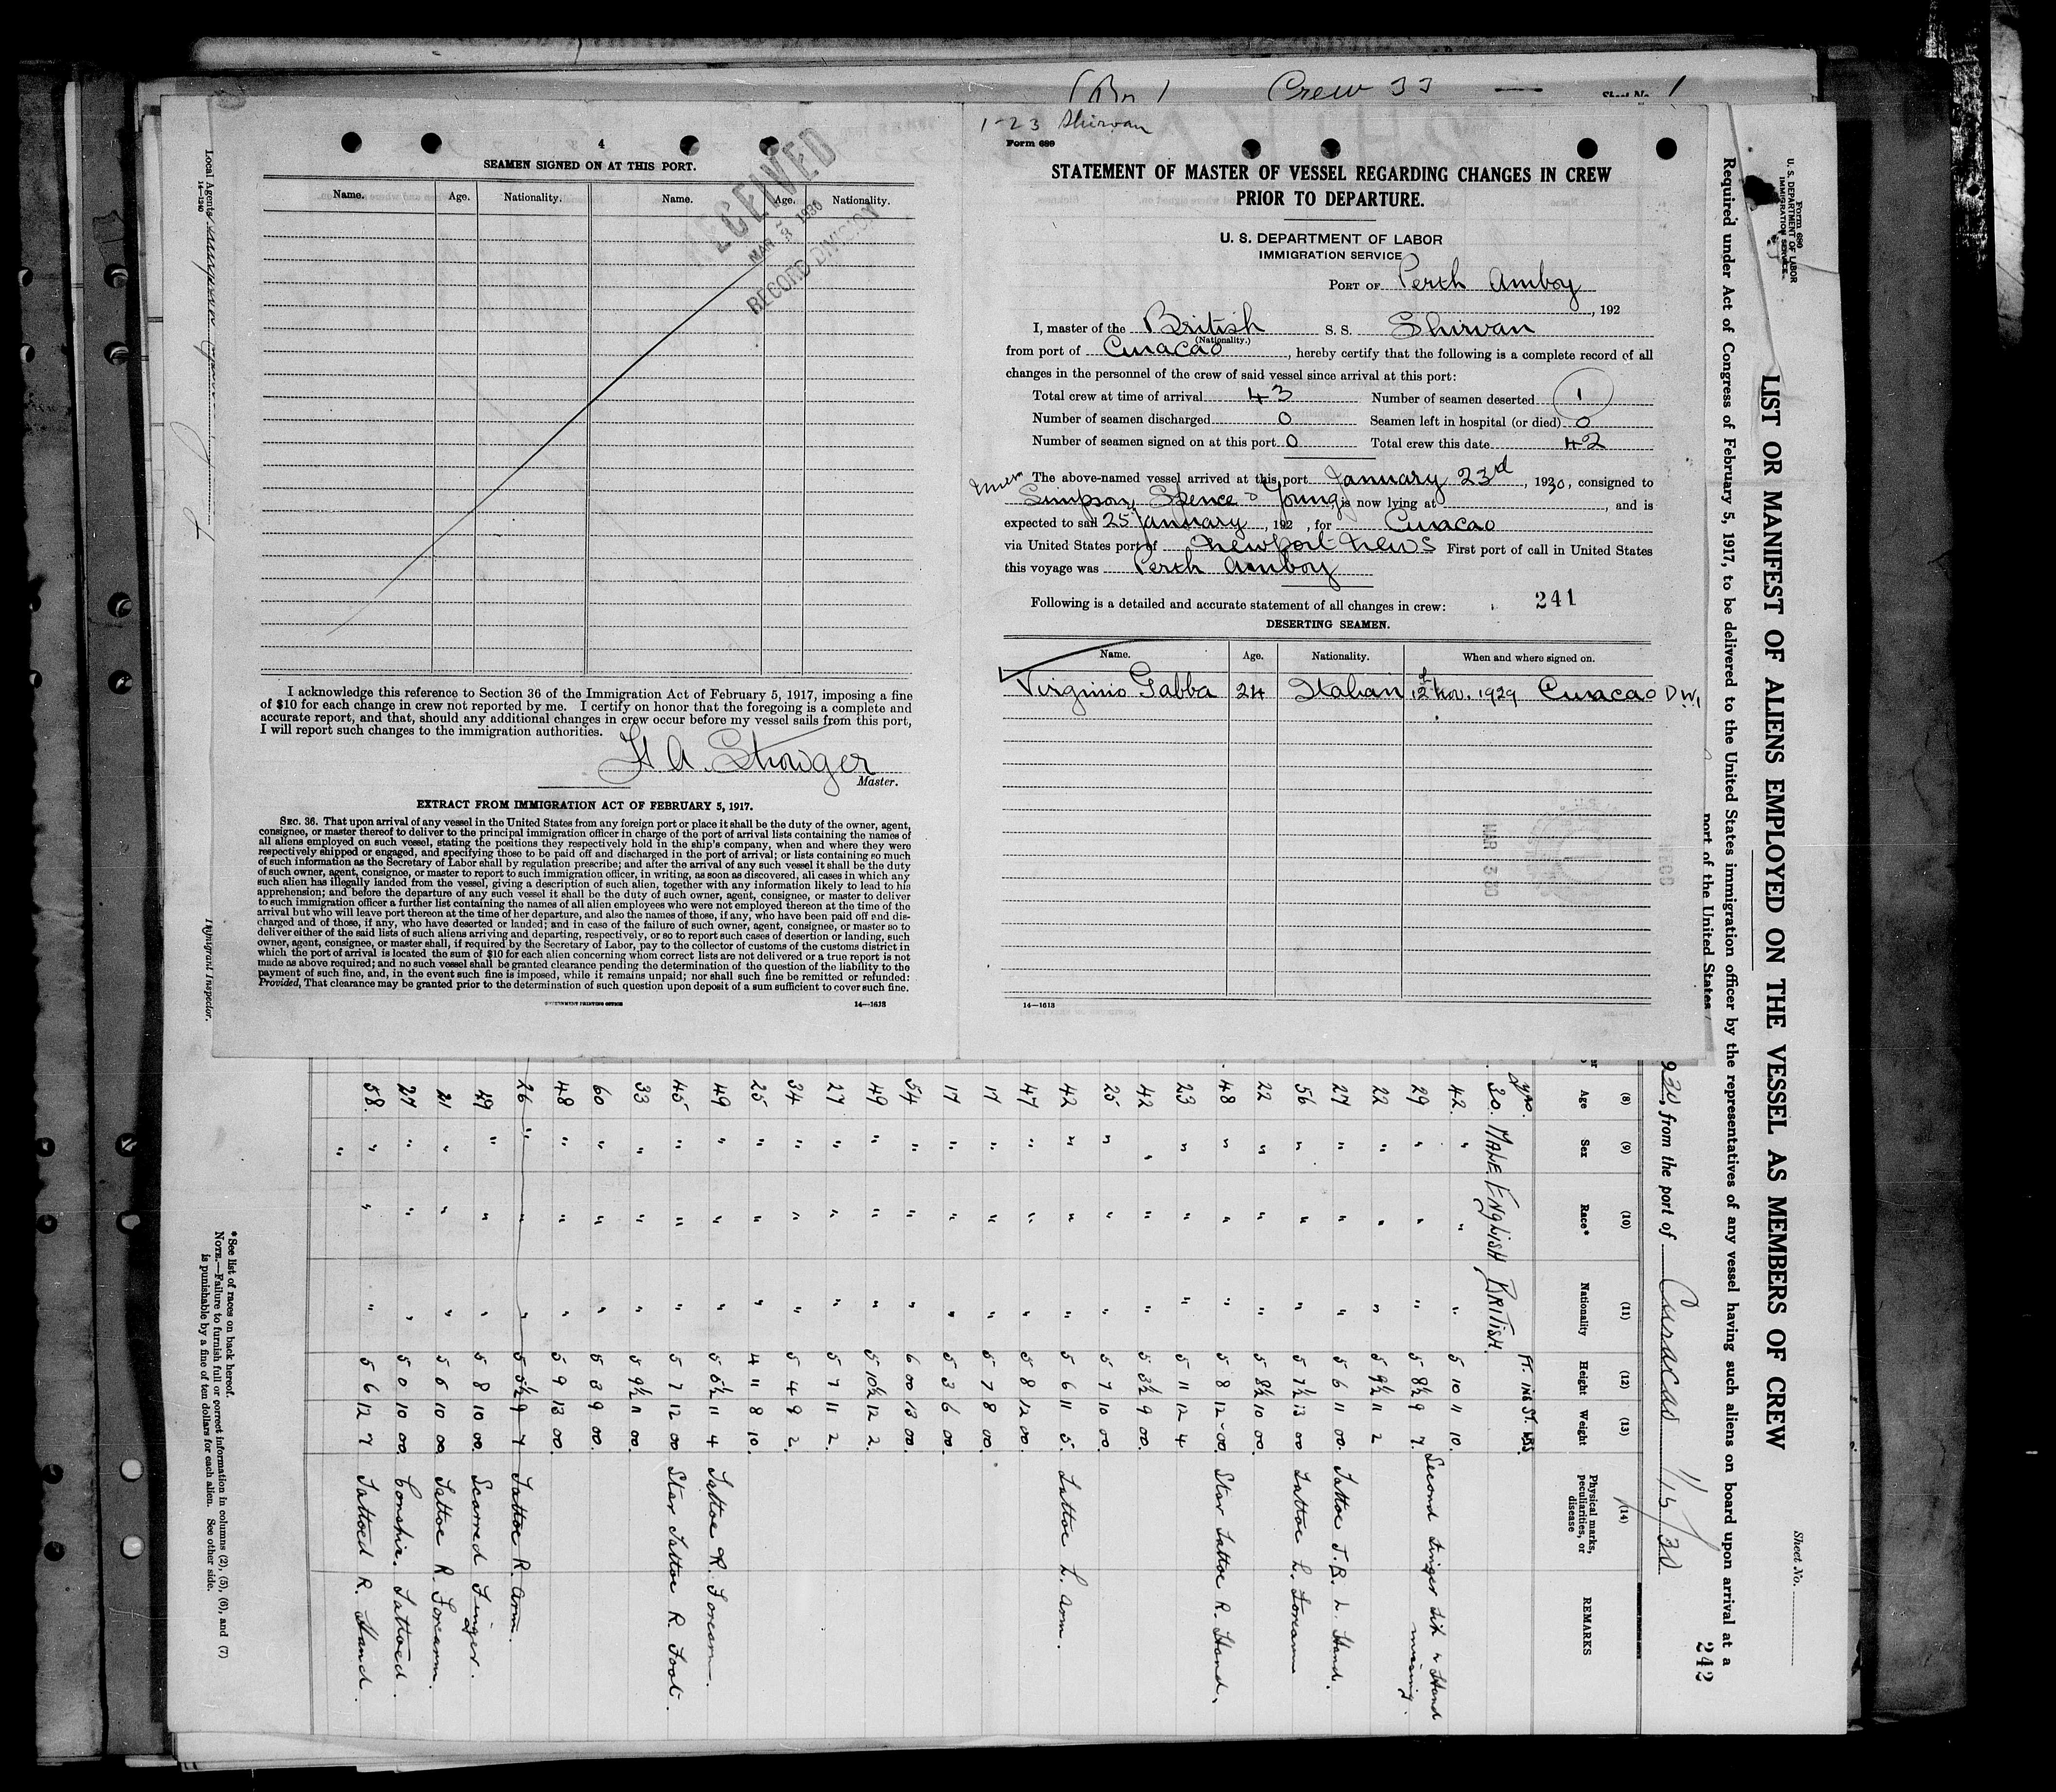 Br 1 Crew 33 — Sheet No. 1
4
SEAMEN SIGNED ON AT THIS PORT.
Name. Age. Nationality. Name. Age. Nationality.
RECEIVED
MAR 3 1930
RECORD DIVISION
I acknowledge this reference to Section 36 of the Immigration Act of February 5, 1917, imposing a fine
of $10 for each change in crew not reported by me. I certify on honor that the foregoing is a complete and
accurate report, and that, should any additional changes in crew occur before my vessel sails from this port,
I will report such changes to the immigration authorities.
H. A. Strowger
Master.
EXTRACT FROM IMMIGRATION ACT OF FEBRUARY 5, 1917.
SEC. 36. That upon arrival of any vessel in the United States from any foreign port or place it shall be the duty of the owner, agent,
consignee, or master thereof to deliver to the principal immigration officer in charge of the port of arrival lists containing the names of
all aliens employed on such vessel, stating the positions they respectively hold in the ship's company, when and where they were
respectively shipped or engaged, and specifying those to be paid off and discharged in the port of arrival; or lists containing so much
of such information as the Secretary of Labor shall by regulation prescribe; and after the arrival of any such vessel it shall be the duty
of such owner, agent, consignee, or master to report to such immigration officer, in writing, as soon as discovered, all cases in which any
such alien has illegally landed from the vessel, giving a description of such alien, together with any information likely to lead to his
apprehension; and before the departure of any such vessel it shall be the duty of such owner, agent, consignee, or master to deliver
to such immigration officer a further list containing the names of all alien employees who were not employed thereon at the time of the
arrival but who will leave port thereon at the time of her departure, and also the names of those, if any, who have been paid off and dis-
charged and of those, if any, who have deserted or landed; and in case of the failure of such owner, agent, consignee, or master so to
deliver either of the said lists of such aliens arriving and departing, respectively, or so to report such cases of desertion or landing, such
owner, agent, consignee, or master shall, if required by the Secretary of Labor, pay to the collector of customs of the customs district in
which the port of arrival is located the sum of $10 for each alien concerning whom correct lists are not delivered or a true report is not
made as above required; and no such vessel shall be granted clearance pending the determination of the question of the liability to the
payment of such fine, and, in the event such fine is imposed, while it remains unpaid; nor shall such fine be remitted or refunded:
Provided, That clearance may be granted prior to the determination of such question upon deposit of a sum sufficient to cover such fine.
GOVERNMENT PRINTING OFFICE 14—1613
1-23 Shirvan
Form 689
STATEMENT OF MASTER OF VESSEL REGARDING CHANGES IN CREW
PRIOR TO DEPARTURE.
U. S. DEPARTMENT OF LABOR
IMMIGRATION SERVICE
PORT OF Perth Amboy
, 192
I, master of the British S. S. Shirvan
(Nationality.)
from port of Curacao, hereby certify that the following is a complete record of all
changes in the personnel of the crew of said vessel since arrival at this port:
Total crew at time of arrival 43 Number of seamen deserted 1
Number of seamen discharged 0 Seamen left in hospital (or died) 0
Number of seamen signed on at this port 0 Total crew this date 42
The above-named vessel arrived at this port January 23rd, 1930, consigned to
Simpson, Spence & Young, is now lying at , and is
expected to sail 25 January, 192 , for Curacao
via United States port of Newport News First port of call in United States
this voyage was Perth Amboy
Following is a detailed and accurate statement of all changes in crew: 241
DESERTING SEAMEN.
Name. Age. Nationality. When and where signed on.
Virginio Gabba 24 Italian 12 Nov. 1929 Curacao D.W.I
MAR 3 30
14—1613
Form 680
U. S. DEPARTMENT OF LABOR
IMMIGRATION SERVICE
Sheet No.
LIST OR MANIFEST OF ALIENS EMPLOYED ON THE VESSEL AS MEMBERS OF CREW
Required under Act of Congress of February 5, 1917, to be delivered to the United States immigration officer by the representatives of any vessel having such aliens on board upon arrival at a
port of the United States
242
930, from the port of Curacao 1/15/30
(8) (9) (10) (11) (12) (13) (14)
Age Sex Race* Nationality Height Weight Physical marks, peculiarities, or disease REMARKS
yrs. Ft. ins St. lbs
30. MALE. ENGLISH BRITISH.
42. " " " 5 10 11 10.
29 " " " 5 8½ 9 7. Second finger missing
22 " " " 5 9½ 11 2
27 " " " 5 6 11 00. Tattoe J.B. L. Hand.
56 " " " 5 7½ 13 00 Tattoe L. Forearm
22 " " " 5 8½ 10 00.
48 " " " 5 8 12-00. Star Tattoe R. Hand.
23 " " " 5 11 12 4
42 " " " 5 3½ 9 00.
25 " " " 5 7 10 00
42 " " " 5 6 11 5. Tattoe L. arm.
47 " " " 5 8 12 00.
17 " " " 5 7 8 00.
17 " " " 5 3 6 00.
54 " " " 6 00 13 00.
49 " " " 5 10½ 12 2.
27 " " " 5 7 11 2.
34 " " " 5 4 9 2.
25 " " " 4 11 8 10.
49 " " " 5 5½ 11 4 Tattoe R. Forearm.
45 " " " 5 7 12 00 Star Tattoe R. Foot.
33 " " " 5 9½ 11 00.
60 " " " 5 3 9 00.
48 " " " 5 9 13 00.
26 " " " 5 5½ 9 7 Tattoe R. arm.
49 " " " 5 8 10 00. Scarred Finger.
21 " " " 5 6 10 00 Tattoe R. Forearm.
27 " " " 5 0 10 00 Tattoed.
58. " " " 5 6 12 7 Tattoed R. Hand.
"
Local Agents
14—1240
Immigrant Inspector.
*See list of races on back hereof.
NOTE.—Failure to furnish full or correct information in columns (2), (5), (6), and (7)
is punishable by a fine of ten dollars for each alien. See other side.